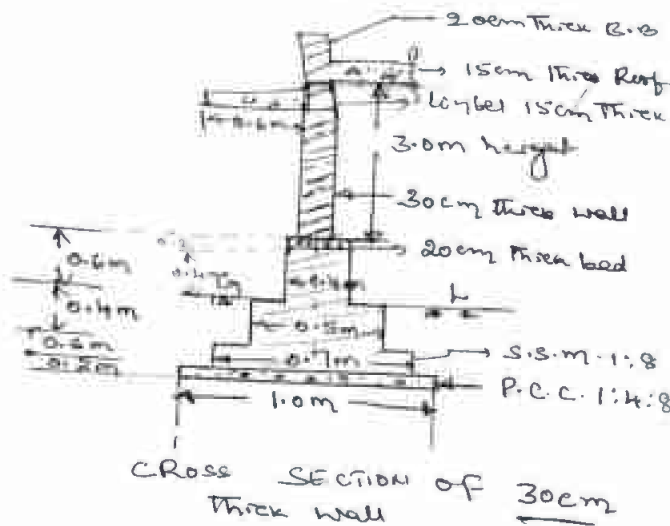 20cm Thick B.B
15cm Thick Roof
Lintel 15cm Thick
0.6m
3.0m height
30cm Thick wall
20cm Thick bed
0.6m
0.4m
0.5m
0.4m
0.6m
0.7m
S.S.M. 1:8
0.2m
P.C.C. 1:4:8
1.0m
CROSS SECTION OF 30cm
Thick wall